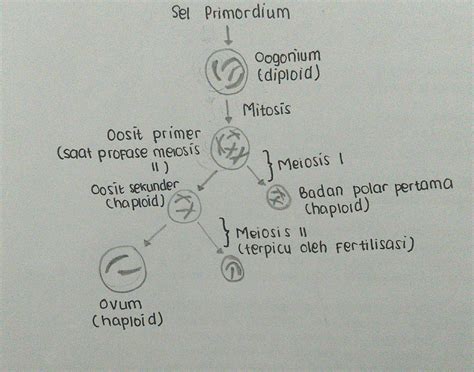 Sel Primordium
Oogonium
(diploid)
Mitosis
Oosit primer
(saat profase meiosis
II)
} Meiosis I
Oosit sekunder
(haploid)
Badan polar pertama
(haploid)
} Meiosis II
(terpicu oleh Fertilisasi)
Ovum
(haploid)